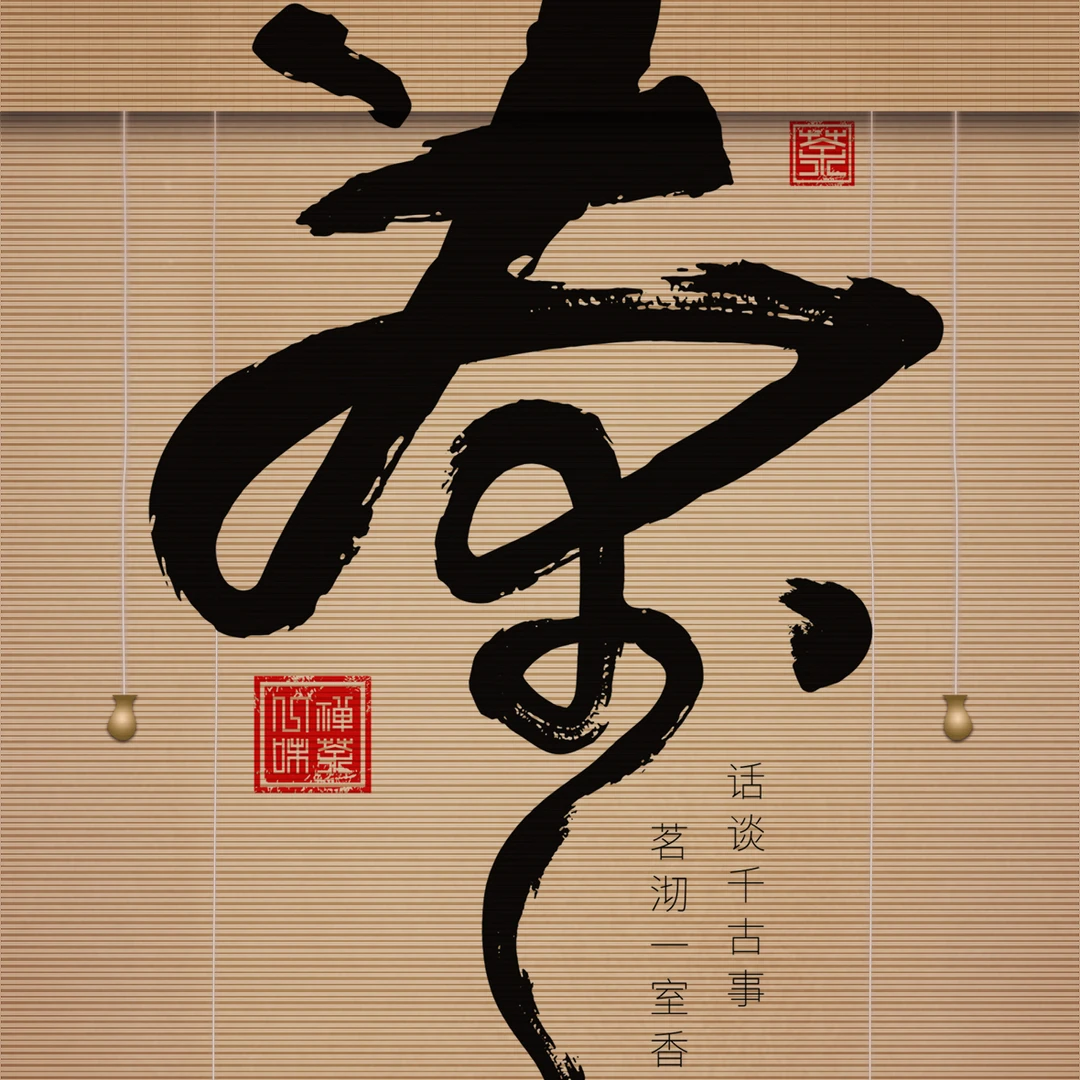 茶
茶
话谈千古事
茗沏一室香
禅茶
一味